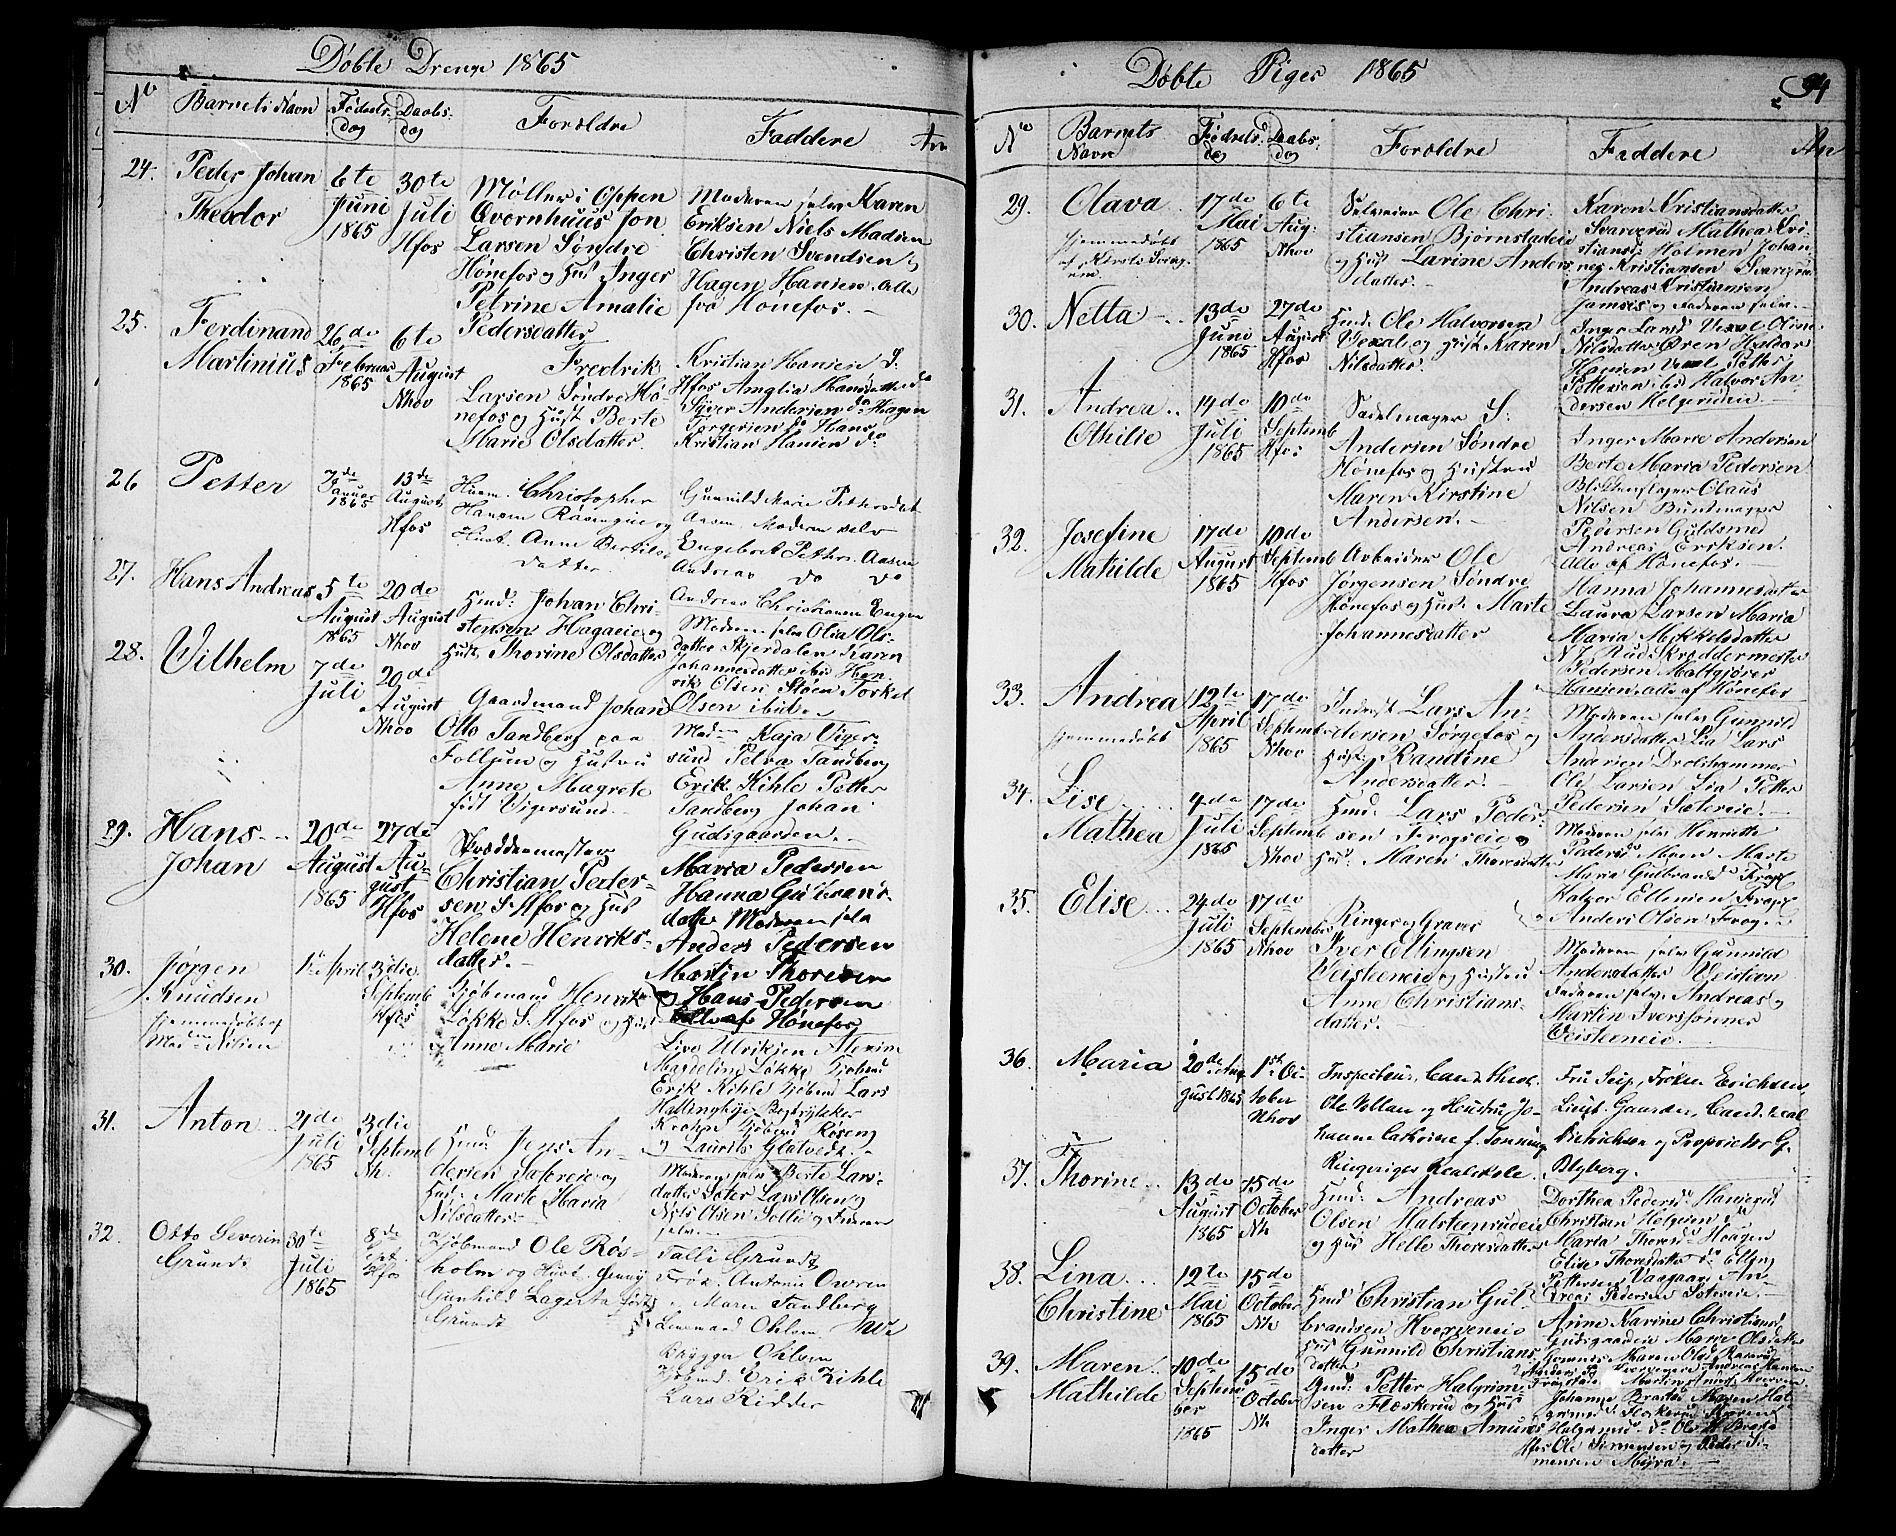 Døbte Drenge 1865
No Barnets Navn Fødsels-dag Daabs-dag Forældre Faddere An
24. Peder Johan Theodor
6te Juni 1865
30te Juli Hfos
Møller i Oppen
Qvornhuus Jon
Larsen Søndre
Hønefos og Hust Inger
Petrine Amalie
Pedersdatter
Moderen selv Karen
Eriksen Niels Madsen
Christen Svendsen og
Hagen Hansen. Alle
fra Hønefos. –
25. Ferdinand Martinius
26de Februar 1865
6te August Nhov
Fredrik
Larsen Søndre Hø-
nefos og Hust Berte
Marie Olsdatter.
Kristian Hansen S.
Hfos Amalia Hansdatter do
Syver Andersen do Hagen
Torgersen do Hans
Kristian Hansen do
26 Petter
7de Januar 1865
13de August Hfos
Husm. Christopher
Hansen Røsengeie og
Hust. Anne Bertils-
datter.
Gunnild Marie Pettersdat
Aasen Moderen selv
Engebret Petters. Aasen
Andreas do do
Andreas Christiansen Engen
27. Hans Andreas
5te August 1865
20de August Nhov
Husmd: Johan Chri-
stensen Hagaeie og
Hust. Thorine Olsdatter
Moderen selv Olia Ols-
datter Skjerdalen Karen
Johannesdatter ibid. Hen-
rik Olsen Støen Torkel
Olsen ibid. –
28. Vilhelm
7de Juli
20de August Nhov
Gaardmand Johan
Otto Tandberg paa
Follum og Hustru
Anne Magrete
født Vigersund. –
Mad– Kaja Viger-
sund Petra Tandberg
Erik Kihle Petter
Tandberg Johan
Gudsgaarden. –
29. Hans Johan
20de August 1865
27de August Hfos
Skræddermester
Christian Peder-
sen S. Hfos og Hust
Helene Henriks-
datter. –
Maria Pedersen
Hanna Gulbrands-
datter Moderen selv
Anders Pedersen
Martin Thoresen
og Hans Pedersen
alle af Hønefos
30. Jørgen Knudsen
hjemmedøbt af
Mad– Nilsen
1ste April
3die Septemb Hfos
Kjøbmand Henrik
Løkke S. Hfos og Hust
Anne Marie
Live Ulriksen
Magdeline Løkke Kjøbmd
Erik Kihle Kjøbmd Lars
Hallingbye Bogtrykker
Krohn Kjøbmd Røsen
og Laurits Glatvedt. –
31. Anton
21de Juli 1865
3die Septemb Nh.
Husmd Jens An-
dersen Sætereie og
Hust. Marte Maria
Nilsdatter. –
Moderen selv Berte Lars-
datter Sæter Lars Olsen og
Nils Olsen Sollie og Faderen
selv. –
32. Otto Severin Grundt
30te Juli 1865
8de Sept Hfo
Kjøbmand Ole Røs-
holm og Hust Jenny
Gunhild Lagerta født
Grundt
Talli Grundt
Frøk. Antonia Owren
Maren Tandberg
Brygger Ohlsen
Kjøbmd. Erik Kihle
Lars Ridder
Døbte Piger 1865
94
No Barnets Navn Fødsels-dag Daabs-dag Forældre Faddere An
29. Olava
hjemmedøbt
17de Mai 1865
6te Aug: Nhov
Selveier Ole Chri-
stiansen Bjørnstadeie
og Hust Larine Anders
datter. –
Karen Kristiansdatter
Svarverud Mathea Kri-
stiansd: Holmen Johan-
nes Kristiansen Svarverud
Andreas Kristiansen
og Faderen selv. –
30. Netta
13de Juni 1865
27de August Hfos
Husmd: Ole Halvorsen
Vexal og Hust Karen
Nilsdatter.
Inger Larsd Vexal Oline
Nilsdatter Øren Haldor
Hansen Vexal Petter
Pettersen ibid Halvor An-
dersen Helgerudeie. –
31. Andrea Othilie
14de Juli 1865
10de Septemb Hfos
Sadelmager S:
Andersen Søndre
Hønefos og Hustru
Maren Kirstine
Andersen. –
Inger Marie Andersen
Berte Maria Pedersen
Blikkenslager Olaus
Nilsen Buntmager
Pedersen Guldsmed
Andreas Eriksen.
Alle af Hønefos. –
32. Josefine Mathilde
17de August 1865
10de Septemb Hfos
Arbeider Ole
Jørgensen Søndre
Hønefos og Hust. Marte
Johannesdatter
Hanna Johannesdatter
Laura Larsen Maria
Maria Mikkelsdatter
N. J. Rud Skræddermester
Pedersen Maltgjører
Hansen alle af Hønefos
33. Andrea
hjemmedøbt
12te April 1865
17de Septemb Nhov
Inderst Lars An-
dersen Sørgefos og
Hust. Randine
Andersdatter. –
Moderen selv Gunnild
Andersdatter Lia Lars
Andersen Drolshammer
Ole Larsen Lia Petter
Pedersen Sætereie. –
34. Lise Mathea
4de Juli 1865
17de Septemb Nhov
Husmd: Lars Peder-
sen Frogseie og
Hust. Maren Thoresdatter
Moderen selv Henriette
Pedersd Moen Marte
Maria Gulbrandsd Frog
Halvor Ellensen Frog
Anders Olsen Frog. –
35. Elise
24de Juli 1865
17de Septembr Nhov
Ringer og Graver
Iver Ellingsen
Veisteneie og Hustru
Anne Christians-
datter. –
Moderen selv Gunnild
Andersdatter Veistien
Faderen selv. Andreas og
Martin Iverssønner
Veisteneie. –
36. Maria
20de August 1865
1ste October Nhov
Inspecteur, Cand. theol.
Ole Vollan og Hustru Jo-
hanne Cathrine f. Lonning
Ringeriges Realskole.
Fru Seip, Frøken Erichsen,
Lieut. Gaarder, Cand. real
Dietrichson og Proprietær G.
Blyberg.
37. Thorine
13de August 1865
15de October Nh
Husmd: Andreas
Olsen Halsteenrudeie
og Hust Helle Thoresdatter
Dorthea Pedersd Hanserud
Christian Helgesen do
Maria Thoresd Haagen
Elise Thoresdatter do Elling
Pettersen Vaagaar An-
dreas Pedersen Sætereie. –
38. Lina Christine
12te Mai 1865
15de October Nh
Husmd Christian Gul-
brandsen Hverveneie
Hust Gunnild Christians
datter
Anne Karine Christiansd
Gudsgaarden Marie Olsdatter
39. Maren Mathilde
10de September 1865
15de October Nh
Husmd Petter Halgrim-
sen Flæskerud og Hust
Inger Mathea Amunds
datter
Johanne Brastad Maren Hal-
grimsd Flæskerud
Hfos Ole Simensen og Peder Si-
mensen Myra. –